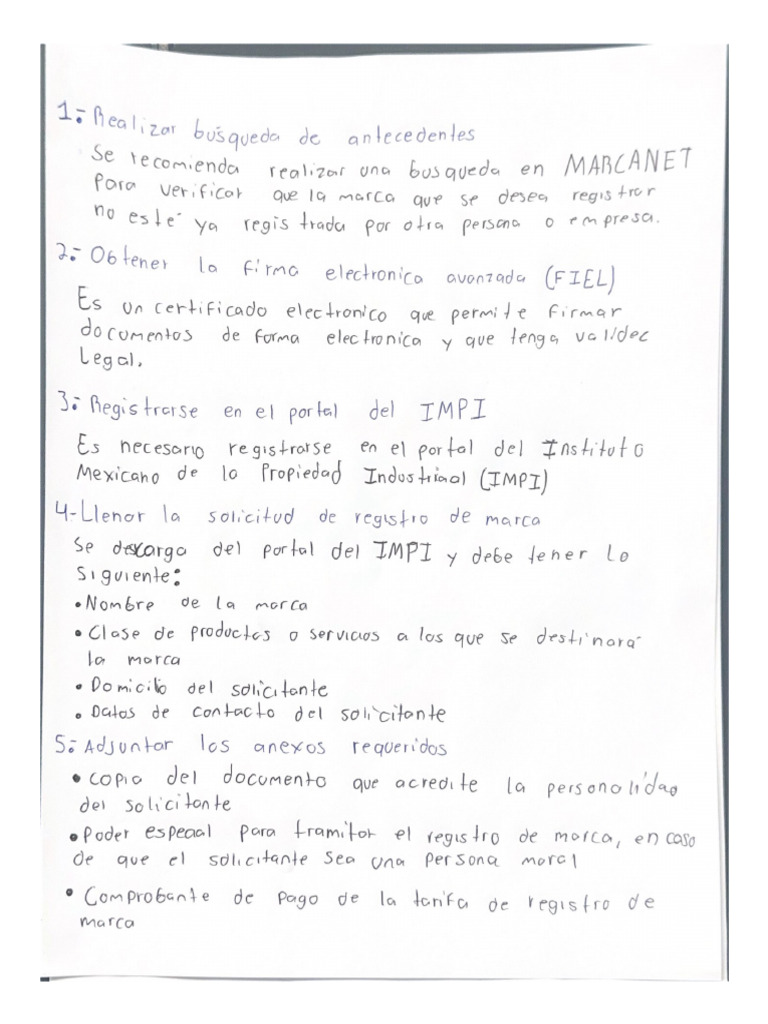 1.- Realizar búsqueda de antecedentes
Se recomienda realizar una busqueda en MARCANET
Para verificar que la marca que se desea registrar
no esté ya registrada por otra persona o empresa.
2.- Obtener la firma electronica avanzada (FIEL)
Es un certificado electronico que permite firmar
documentos de forma electronica y que tenga validec
Legal.
3.- Registrarse en el portal del IMPI
Es necesario registrarse en el portal del Instituto
Mexicano de la Propiedad Industriaal (IMPI)
4-Llenar la solicitud de registro de marca
Se descarga del portal del IMPI y debe tener lo
Siguiente:
• Nombre de la marca
• Clase de productos o servicios a los que se destinará
la marca
• Domicilio del solicitante
• Datos de contacto del solicitante
5.- Adjuntar los anexos requeridos
• copia del documento que acredite la personalidad
del solicitante
• Poder especial para tramitar el registro de marca, en caso
de que el solicitante sea una persona moral
• Comprobante de pago de la tarifa de registro de
marca